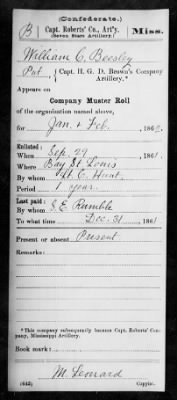 (Confederate.)
B | Capt. Roberts' Co., Art'y. | Miss.
(Seven Stars Artillery.)
William C. Beesley
Pvt., Capt. H. G. D. Brown's Company Artillery.*
Appears on
Company Muster Roll
of the organization named above,
for Jan. & Feb., 186
Enlisted:
When Sep. 29, 186
Where Bay St. Louis
By whom Lt. C. Hunt
Period 1 year
Last paid:
By whom S. E. Rumble
To what time Dec. 31, 1861
Present or absent Present
Remarks:
*This company subsequently became Capt. Roberts' Company, Mississippi Artillery.
Book mark:
M. Leonard
(642) Copyist.